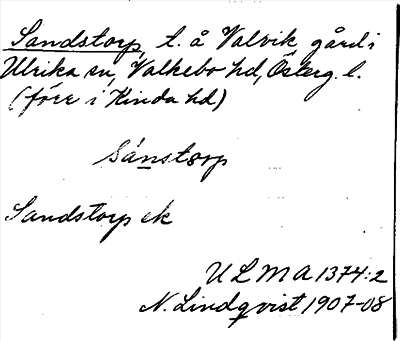 Sandstorp, t. å Valvik, gård i
Ulrika sn, Valkebo hd, Österg. l.
(förr i Kinda hd)
sánstorp
Sandstorp ek
ULMA 1374:2
N. Lindqvist 1907-08